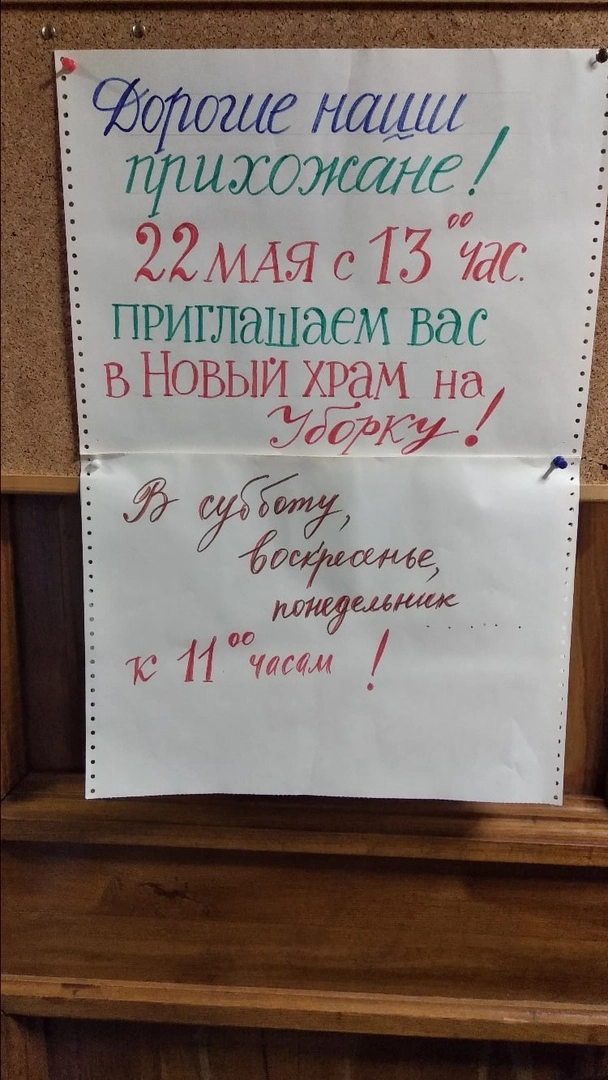 Дорогие наши
прихожане!
22 МАЯ с 13⁰⁰ час.
ПРИГЛАШАЕМ ВАС
в НОВЫЙ ХРАМ на
Уборку!
В субботу,
воскресенье,
понедельник .......
к 11⁰⁰ часам !